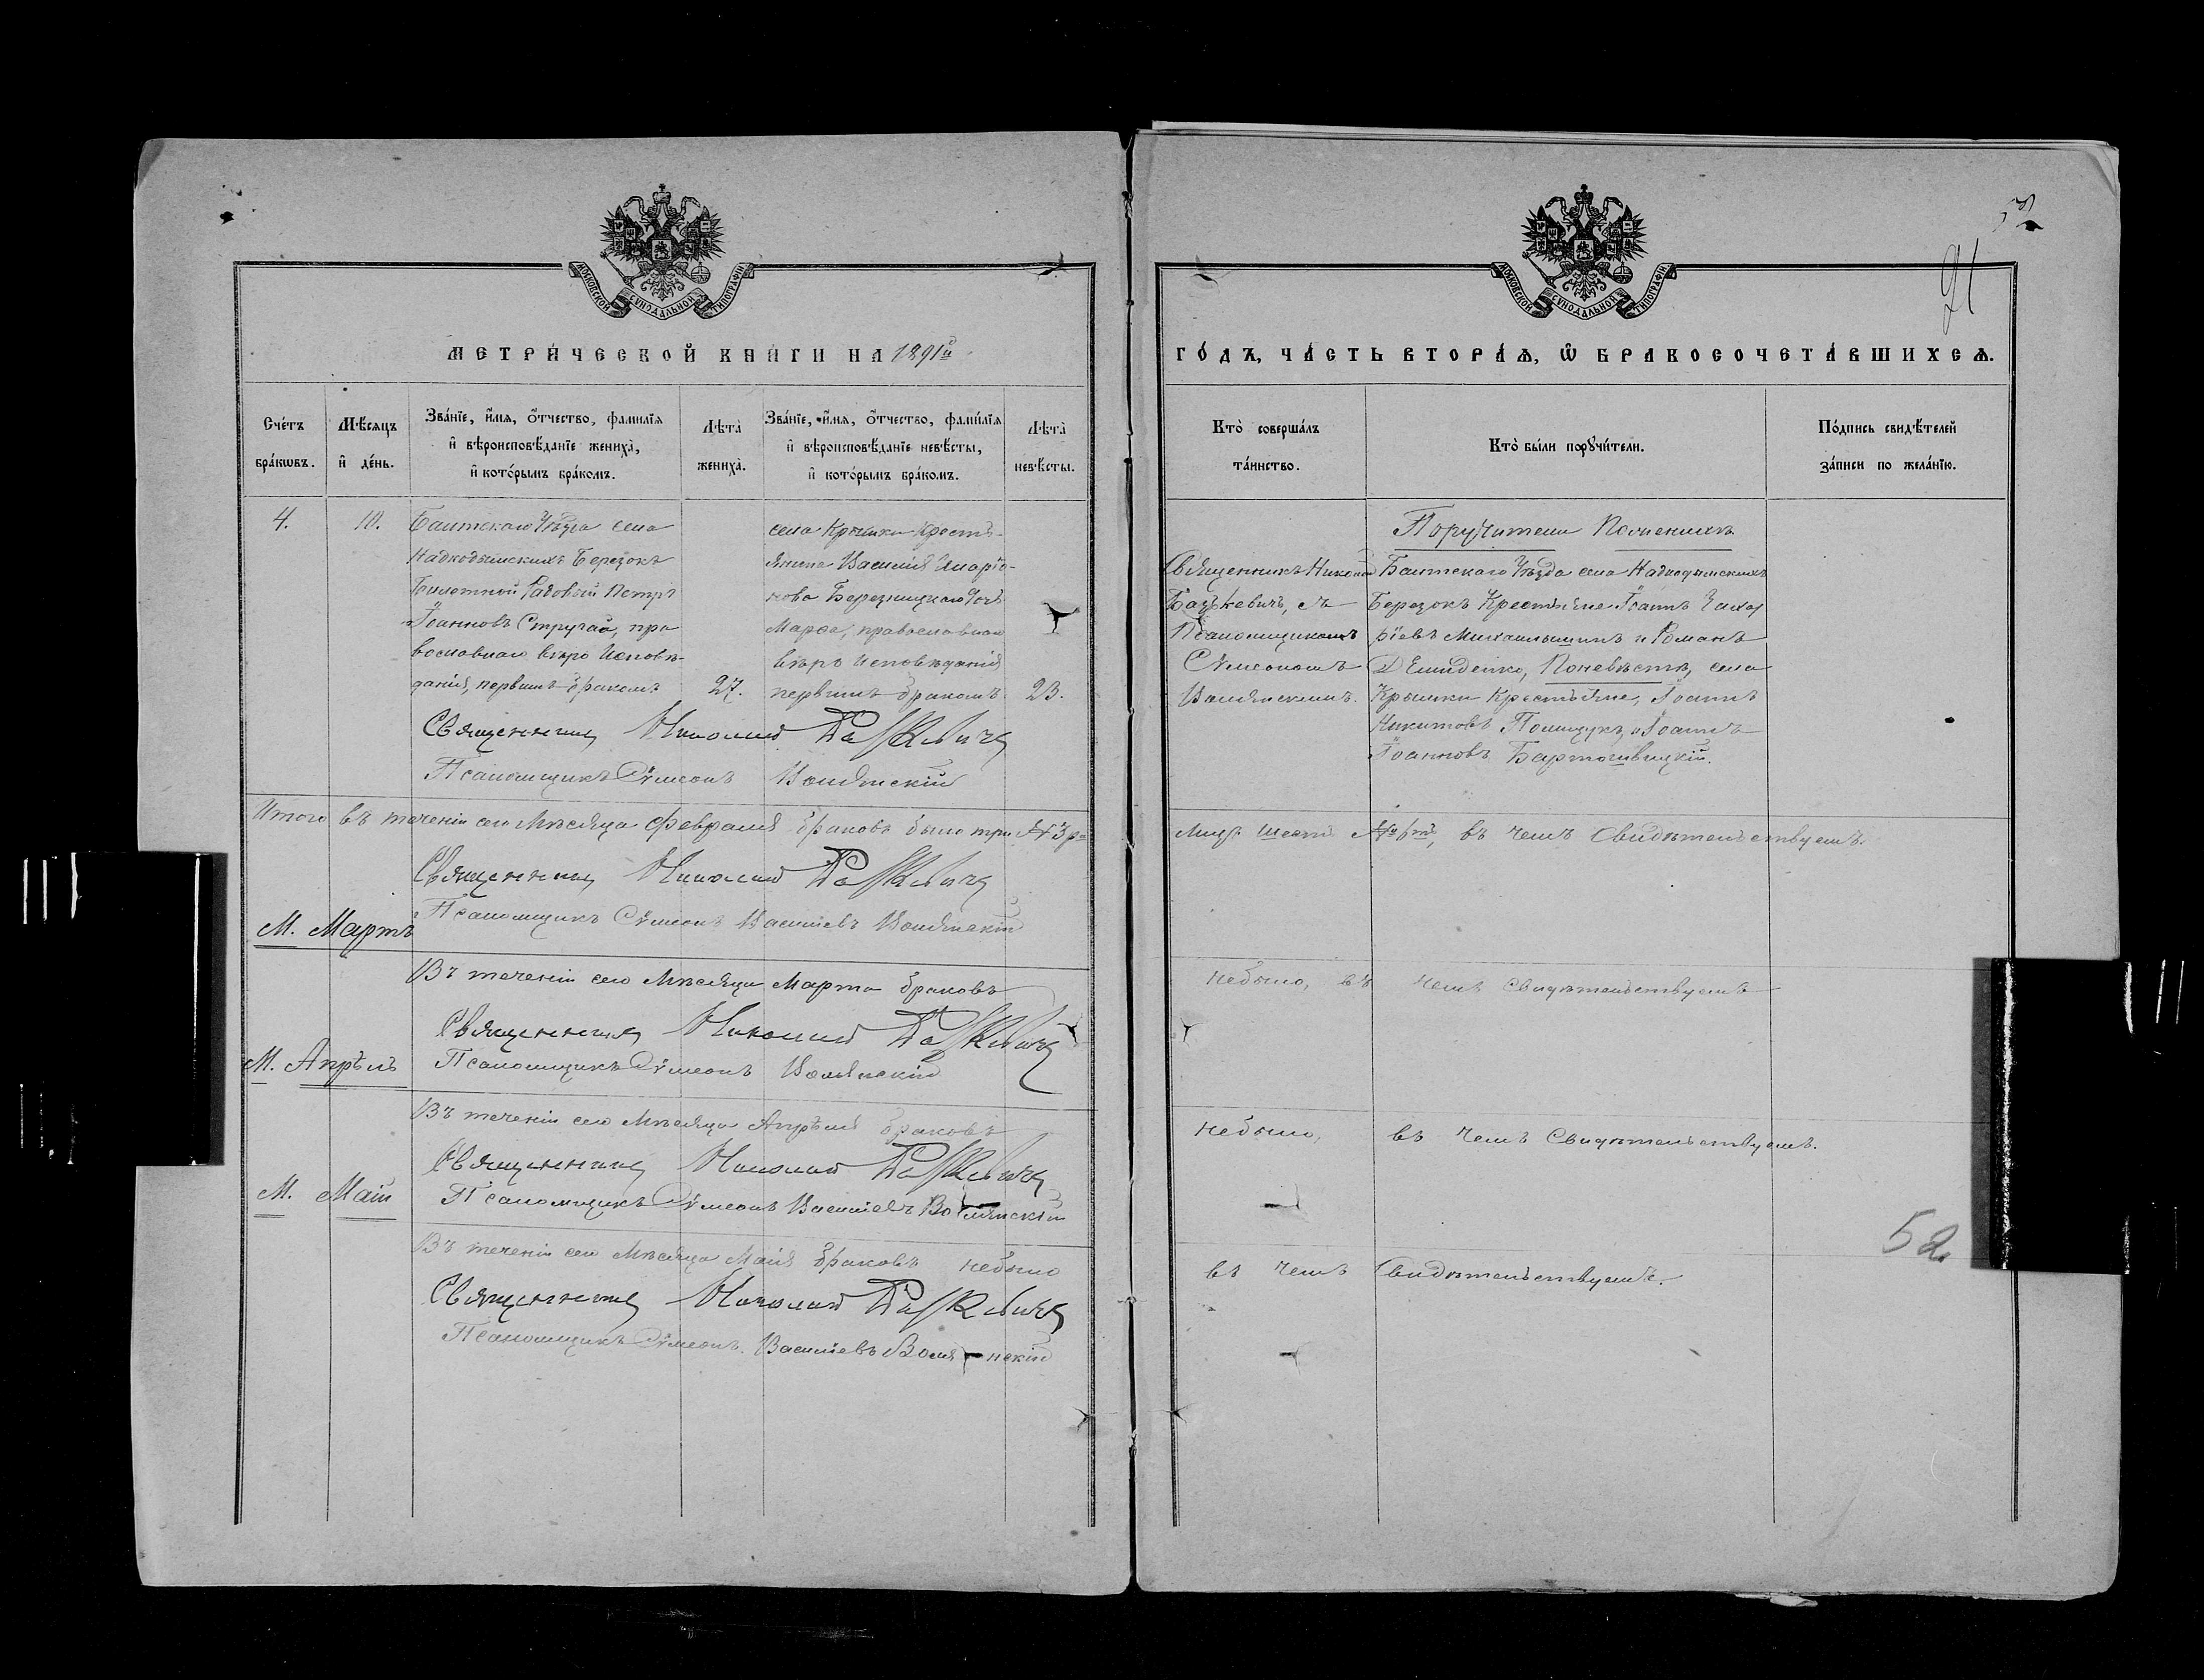 МОСКОВСКОЙ СѴНОДАЛЬНОЙ ТИПОГРАФІИ
МЕТРИ́ЧЕСКОЙ КНИ́ГИ НА 1891й
Сче́тъ бра́кѡвъ.
Мѣ́сяцъ и҆ де́нь.
Зва́нїе, и҆́мя, ѻ҆́тчество, фамилїя
и҆ вѣроисповѣ́данїе жениха̀,
и҆ кото́рымъ бра́комъ.
Лѣта̀ жениха̀.
Зва́нїе, и҆́мя, ѻ҆́тчество, фами́лїя
и҆ вѣроисповѣ́данїе невѣ́сты,
и҆ кото́рымъ бра́комъ.
Лѣта̀ невѣ́сты.
4.
10.
Балтскаго Уѣзда села
Надкодымскихъ Березокъ
Билетный Рядовый Петръ
Іоанновъ Стругай, пра
вославнаго вѣро Исповѣ-
данія, первымъ бракомъ
27.
села Крымки Кресть-
янина Василія Иларіо-
нова Березницкаго дочь
Марѳа, православнаго
вѣро исповѣданія
первымъ бракомъ
23.
Священникъ Николай
Псаломщикъ Сѵмеонъ Волянскій
Итого въ теченіи сего Мѣсяца Февраля браковъ было три № 3
Священникъ Николай
Псаломщикъ Сѵмеонъ Василіевъ Волянскій
М. Мартъ
Въ теченіи сего Мѣсяца Марта браковъ
Священникъ Николай
Псаломщикъ Сѵмеонъ Волянскій
М. Апрѣль
Въ теченіи сего Мѣсяца Апрѣля браковъ
Священникъ Николай
Псаломщикъ Сѵмеонъ Василіевъ Волянскій
М. Май
Въ теченіи сего Мѣсяца Маія браковъ небыло
Священникъ Николай
Псаломщикъ Сѵмеонъ Василіевъ Волянскій
52
21
МОСКОВСКОЙ СѴНОДАЛЬНОЙ ТИПОГРАФІИ
ГО́ДЪ, ЧА́СТЬ ВТОРА́Ѧ, Ѽ БРАКОСОЧЕТА́ВШИХСѦ.
Кто̀ соверша́лъ та́инство.
Кто̀ бы́ли порꙋчи́тели.
По́дпись свидѣ́телей
за́писи по жела́нїю.
Священникъ Николай
съ
Псаломщикомъ
Сѵмеономъ
Волянскимъ.
Поручители По женихѣ
Балтскаго Уѣзда села Надкодымскихъ
Березокъ Крестьяне Іоаннъ Захар
іевъ и Романъ
Демиденко, По невѣстѣ, села
Крымки Крестьяне, Іоаннъ
Никитовъ Полищукъ и Іоаннъ
Іоанновъ
въ чемъ Свидѣтельствуемъ.
небыло, въ чемъ Свидѣтельствуемъ
небыло, въ чемъ Свидѣтельствуемъ.
въ чемъ Свидѣтельствуемъ.
52